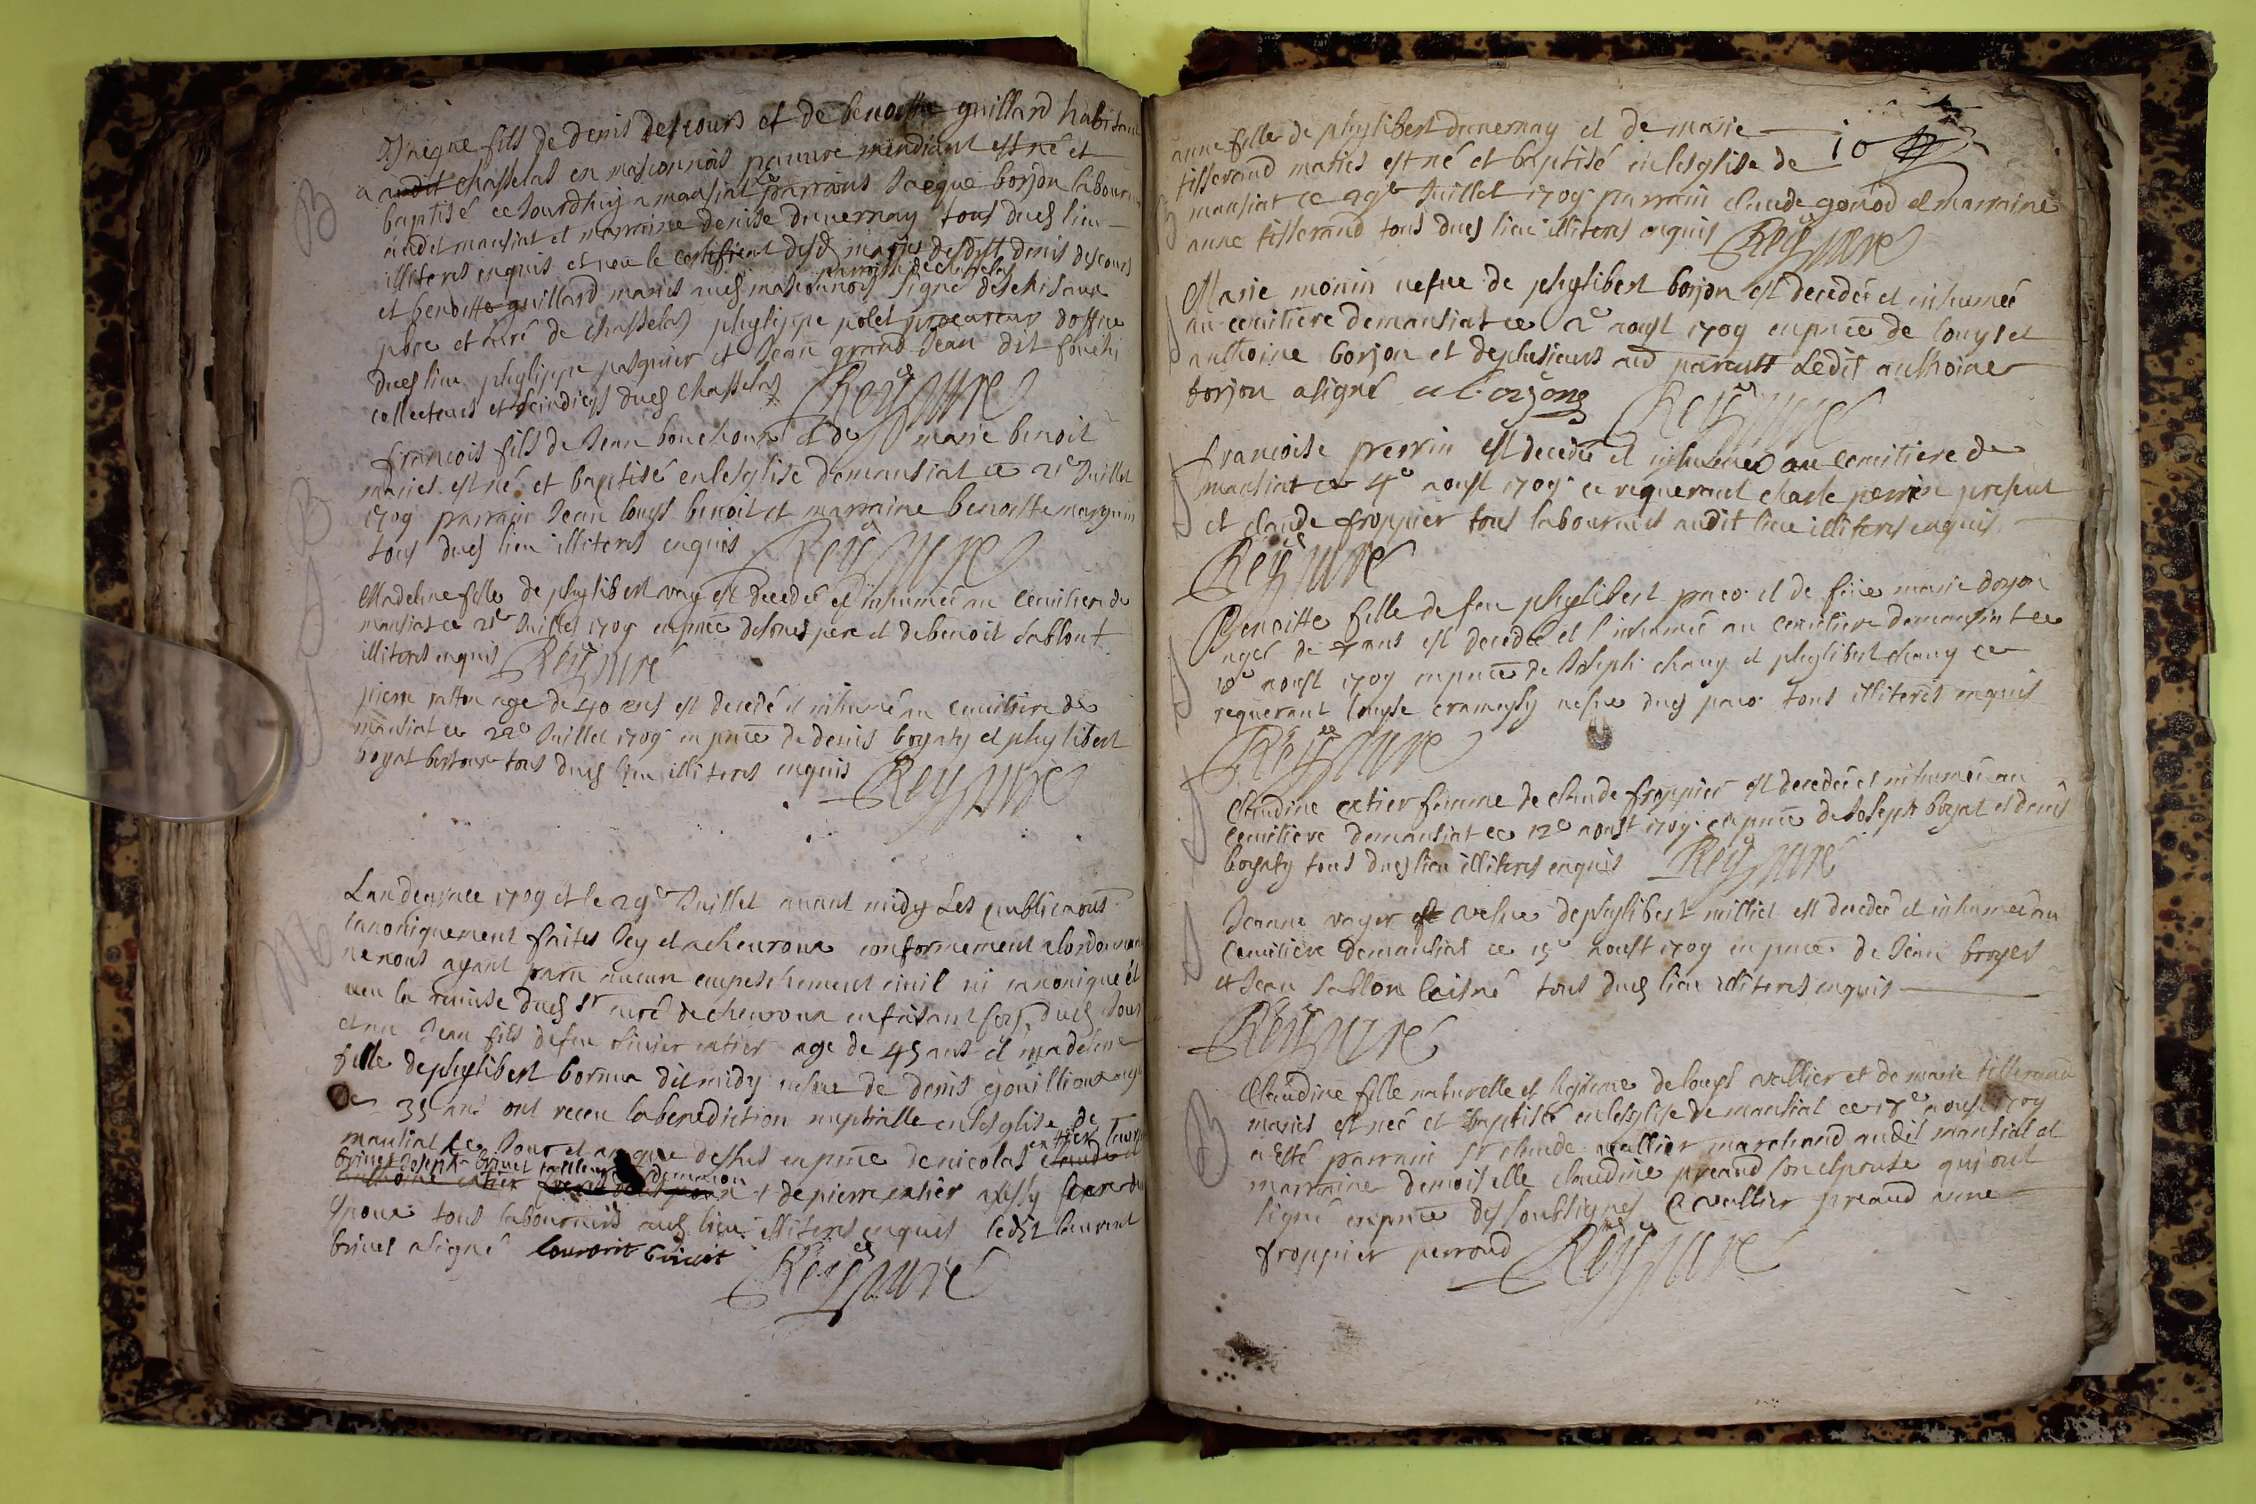 Jacque fils de denis descours et de benoitte guillard habitant
a audit chasselas en masconnois pauvre mendiant est né et
baptisé ce Jourdhuy a mansiat parrains Jacque borjon laboureur
audit mansiat et marraine denise duuernay tous dud lieu
illiteres enquis et veu le certificat desd mariés desdits denis descours
et benoitte guillard mariés aud masconnois parroisse de chasselas signé deschisaux
pbre et curé de chasselas phylippe polet procureur doffice
dud lieu phylippe pasquier et Jean grand Jean dit
collecteurs et scindicqs dud chasselas Rey curé
B
francois fils de Jean bouchoux et de marie benoit
mariés est né et baptisé en lesglise de mansiat ce 21e Juillet
1709 parrain Jean louys benoit et marraine benoitte
tous dud lieu illiteres enquis Rey curé
B
Madeleine fille de phylibert vay est decedée et inhumée au cemitiere de
mansiat ce 21e Juillet 1709 en pnce de son pere et de benoit sablon
illiteres enquis Rey curé
pierre ratton age de 40 ans est decedé et inhumé au cemitiere de
mansiat ce 22e Juillet 1709 en pnce de denis boyaty et phylibert
boyat tous dud lieu illiteres enquis Rey curé
M
Lan de grace 1709 et le 29e Juillet auant midy Les publicaons
canoniquement faites Icy et a cheuroux conformement a lordonnance
ne nous ayant paru aucun empeschement ciuil ni canonique et
veu la remise dud sr curé de cheuroux en faisant foy dud Jour
et an Jean fils de feu oliuier catier age de 45 ans et madeleine
fille de phylibert borma dit midy vefve de denis gouillioux agée
de 35 ans ont receu la benediction nuptialle en lesglise de
mansiat ce Jour et an que dessus en pnce de nicolas catier laurent
briuet Joseph briuet tailleur
et de pierre catier
tous laboureurs aud lieu illiteres enquis ledit laurent
briuet a signé lourant briuet Rey curé
10
anne fille de phylibert duuernay et de marie
tisserand mariés est né et baptisé en lesglise de
mansiat ce 29e Juillet 1709 parrain claude gonod et marraine
anne tisserand tous dud lieu illiteres enquis Rey curé
Marie monin vefue de phylibert borjon est decedée et inhumée
au cemitiere de mansiat ce 2e aoust 1709 en pnce de louys et
anthoine borjon et de plusieurs aud parents Ledit anthoine
borjon a signé a borjon Rey curé
francoise perrin est decedée et inhumée au cemitiere de
mansiat ce 4e aoust 1709 ce requerant charle perrin present
et claude froppier tous laboureurs audit lieu illiteres enquis
Rey curé
Benoitte fille de feu phylibert paco et de feüe marie doyon
agée de ans est decedée et inhumée au cemitiere de mansiat ce
10e aoust 1709 en pnce de Joseph chany et phylibert chany ce
requerant louyse vefue dud paco tous illiteres enquis
Rey curé
Claudine catier femme de claude froppier est decedée et inhumée au
cemitiere de mansiat ce 12e aoust 1709 en pnce de Joseph boyat et denis
boyaty tous dud lieu illiteres enquis Rey curé
Jeanne voyer vefue de phylibert milliet est decedée et inhumée au
cemitiere de mansiat ce 15e aoust 1709 en pnce de Jean broyer
et Jean sablon laisné tous dud lieu illiteres enquis
Rey curé
B
Claudine fille naturelle et legitime de louys vallier et de marie tisserand
mariés est née et baptisée en lesglise de mansiat ce 17e aoust 1709
a esté parrain sr claude vallier marchand audit mansiat et
marraine demoiselle claudine preaud son espouse qui ont
signé en pnce des soubsignes C vallier preaud
froppier perroud Rey curé